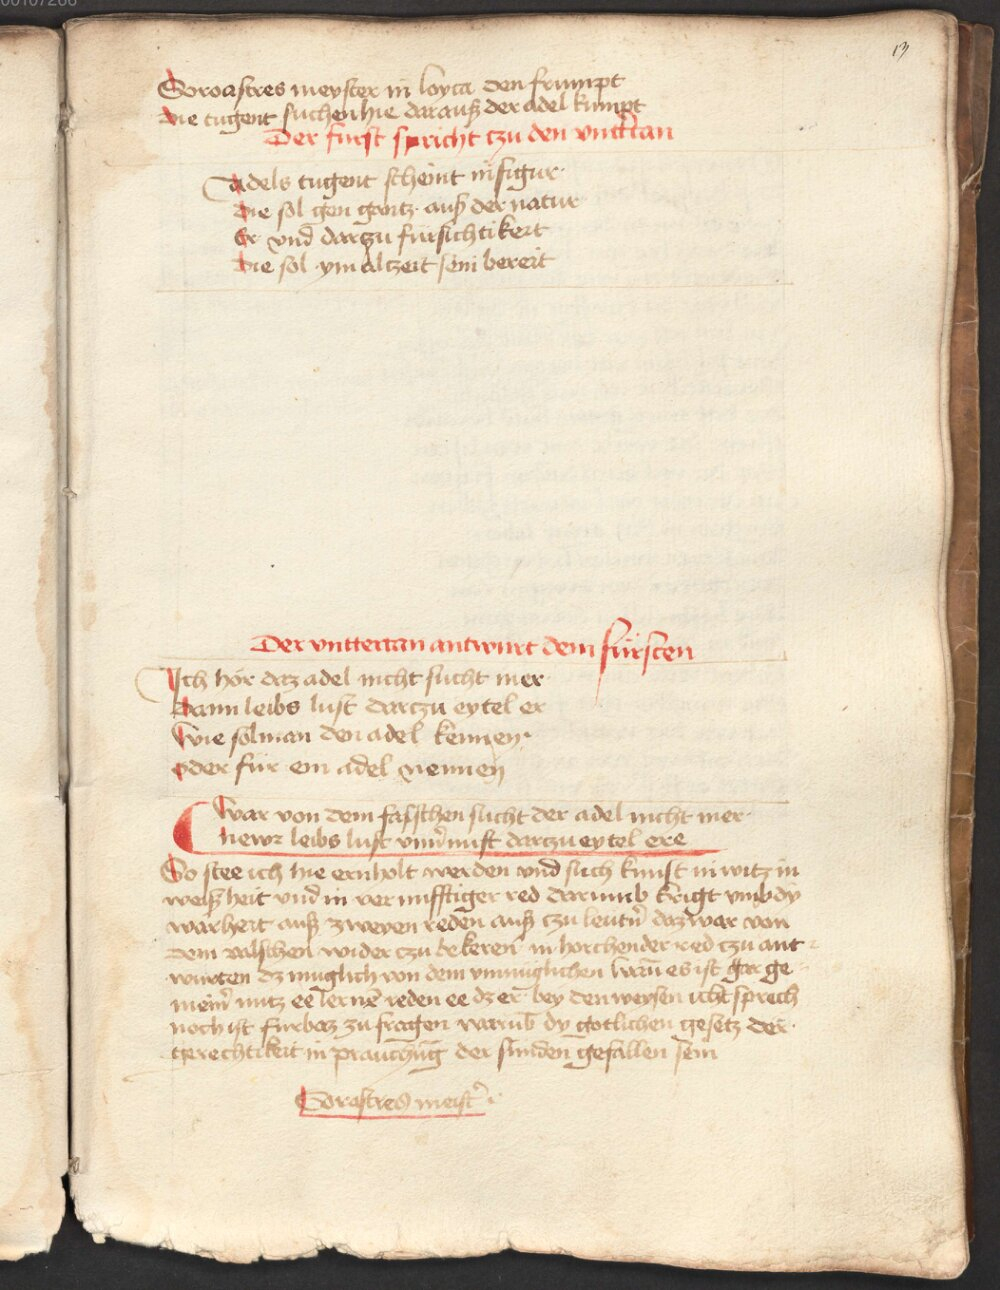 00107266
13
Soroastres meyster in loyca den frumpt
Die tugent suchen hie darauß der adel kumpt
Der furst spricht czu den vndtan
Adels tugent scheint in figur
Die sol gen gantz auß der natur
Er vnd darczu fursichtikeit
Die sol ym alczeit sein bereit
Der vnttertan antwurt dem fürsten
Ich hör daz adel nicht sucht mer
Dann leibs lust darczu eytel er
Wie sol man den adel kennen
oder für ein adel nennen
War von dem falschen sucht der adel nicht mer
newr leibs lust vnd darczu eytel ere
So stee ich hie ernholt werden vnd such kunst in witz in
weißheit vnd in vernufftiger red darumb krigt vmb dy
warheit auß zweyen reden auß czu leutn daz war von
dem valschen wider czu bekeren in horchender red czu ant
wurten dz muglich von dem vnmuglichen wan es ist gar ge
mein nutz ee lernen reden ee dz er bey den weysen icht sprech
noch ist furbaz zu fragen warub dy gotlichen gesetz der
gerechtikeit in prauchung der sunden gefallen sein
Sorastres meist